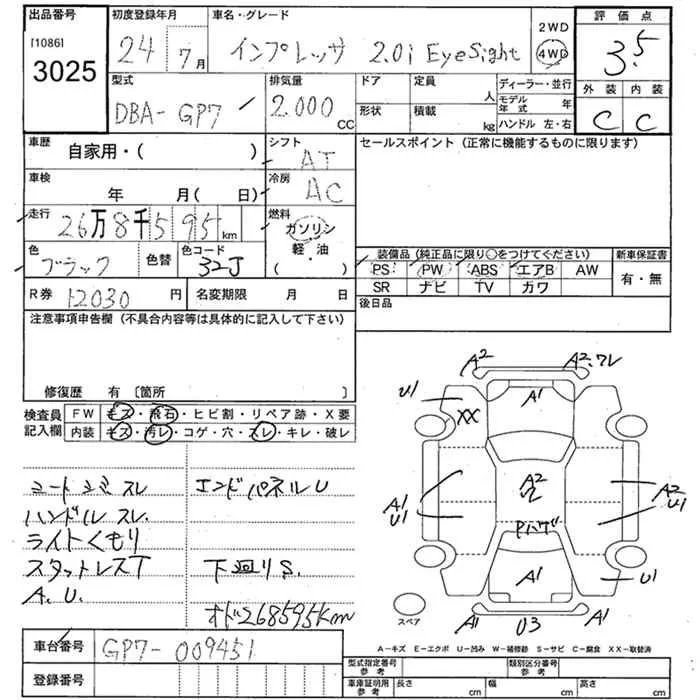 出品番号
[1086]
3025
初度登録年月
24年 7月
車名・グレード
インプレッサ 2.0i EyeSight
2WD
4WD
評価点
3.5
外装 内装
C C
型式
DBA-GP7
排気量
2.000 CC
ドア
定員
人
形状
積載
kg
ディーラー・並行
モデル年式 年
ハンドル 左・右
車歴
自家用・( )
シフト
AT
セールスポイント (正常に機能するものに限ります)
車検
年 月( 日)
冷房
AC
走行
26万8千595km
燃料
ガソリン
軽・油
( )
色
ブラック
色替
色コード
32J
装備品 (純正品に限り○をつけてください)
PS PW ABS エアB AW
SR ナビ TV ガワ
新車保証書
有・無
R券
12030円
名変期限 月 日
後日品
注意事項申告欄 (不具合内容等は具体的に記入して下さい)
修復歴 有 [箇所 ]
検査員記入欄
FW キズ・飛石・ヒビ割・リペア跡・X要
内装 キズ・汚レ・コゲ・穴・スレ・キレ・破レ
シートシミ スレ
ハンドル スレ.
ライトくもり
スタットレスT
A.U.
エンドパネルU
下廻りS.
オド268595km
A2
A2.ワレ
U1
XX
A1
A2
A1
U1
A2
U1
Pハゲ
A1
U1
A1
U3
A1
スペア
A-キズ E-エクボ U-凹み W-補修跡 S-サビ C-腐食 XX-取替済
車台番号
GP7-009451
登録番号
型式指定番号
参考
類別区分番号
参考
車庫証明用
参考
長さ cm
幅 cm
高さ cm